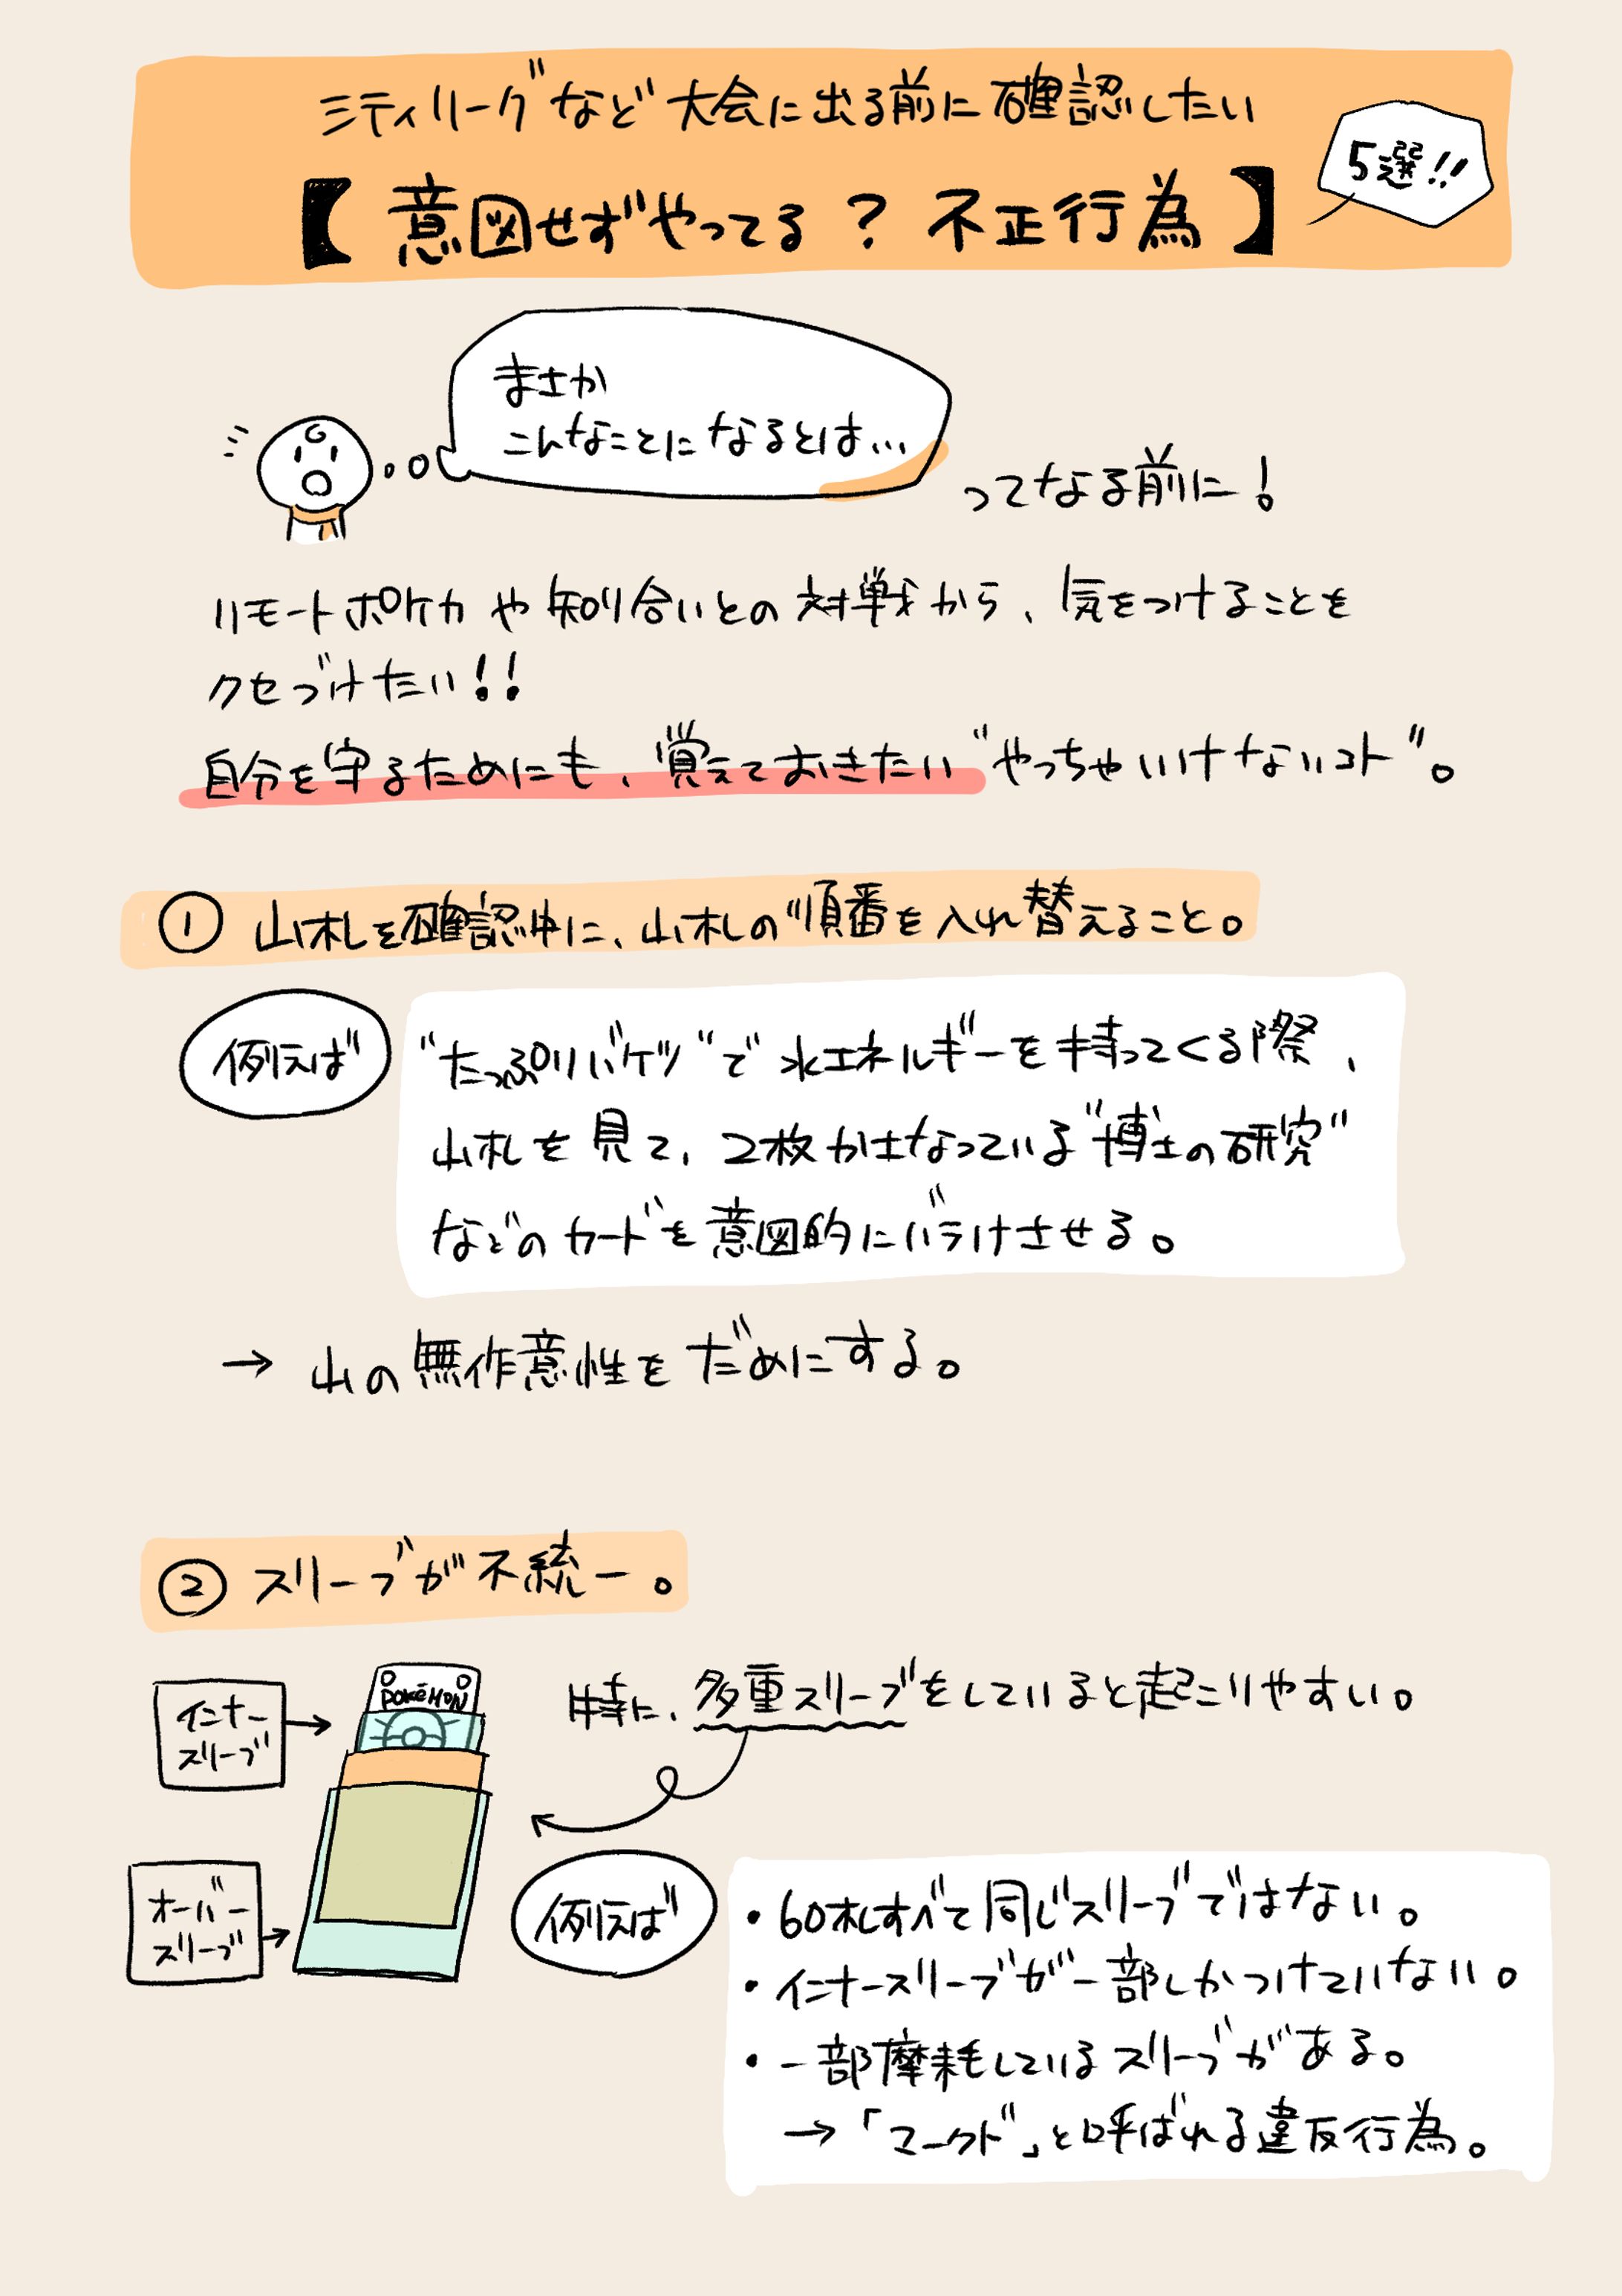 ミティリーグなど大会に出る前に確認したい
【意図せずやってる？不正行為】
5選!!
まさか
こんなことになるとは…
ってなる前に！
リモートポケカや知り合いとの対戦から、気をつけることを
クセづけたい！！
自分を守るためにも、覚えておきたい“やっちゃいけないコト”。
① 山札を確認中に、山札の順番を入れ替えること。
例えば
“たっぷりバケツ”で水エネルギーを持ってくる際、
山札を見て、2枚かさなっている“博士の研究”
などのカードを意図的にバラけさせる。
→ 山の無作意性をだめにする。
② スリーブが不統一。
インナー
スリーブ
POKéMON
特に、多重スリーブをしていると起こりやすい。
オーバー
スリーブ
例えば
・60札すべて同じスリーブではない。
・インナースリーブが一部しかつけていない。
・一部摩耗しているスリーブがある。
→「マークド」と呼ばれる違反行為。